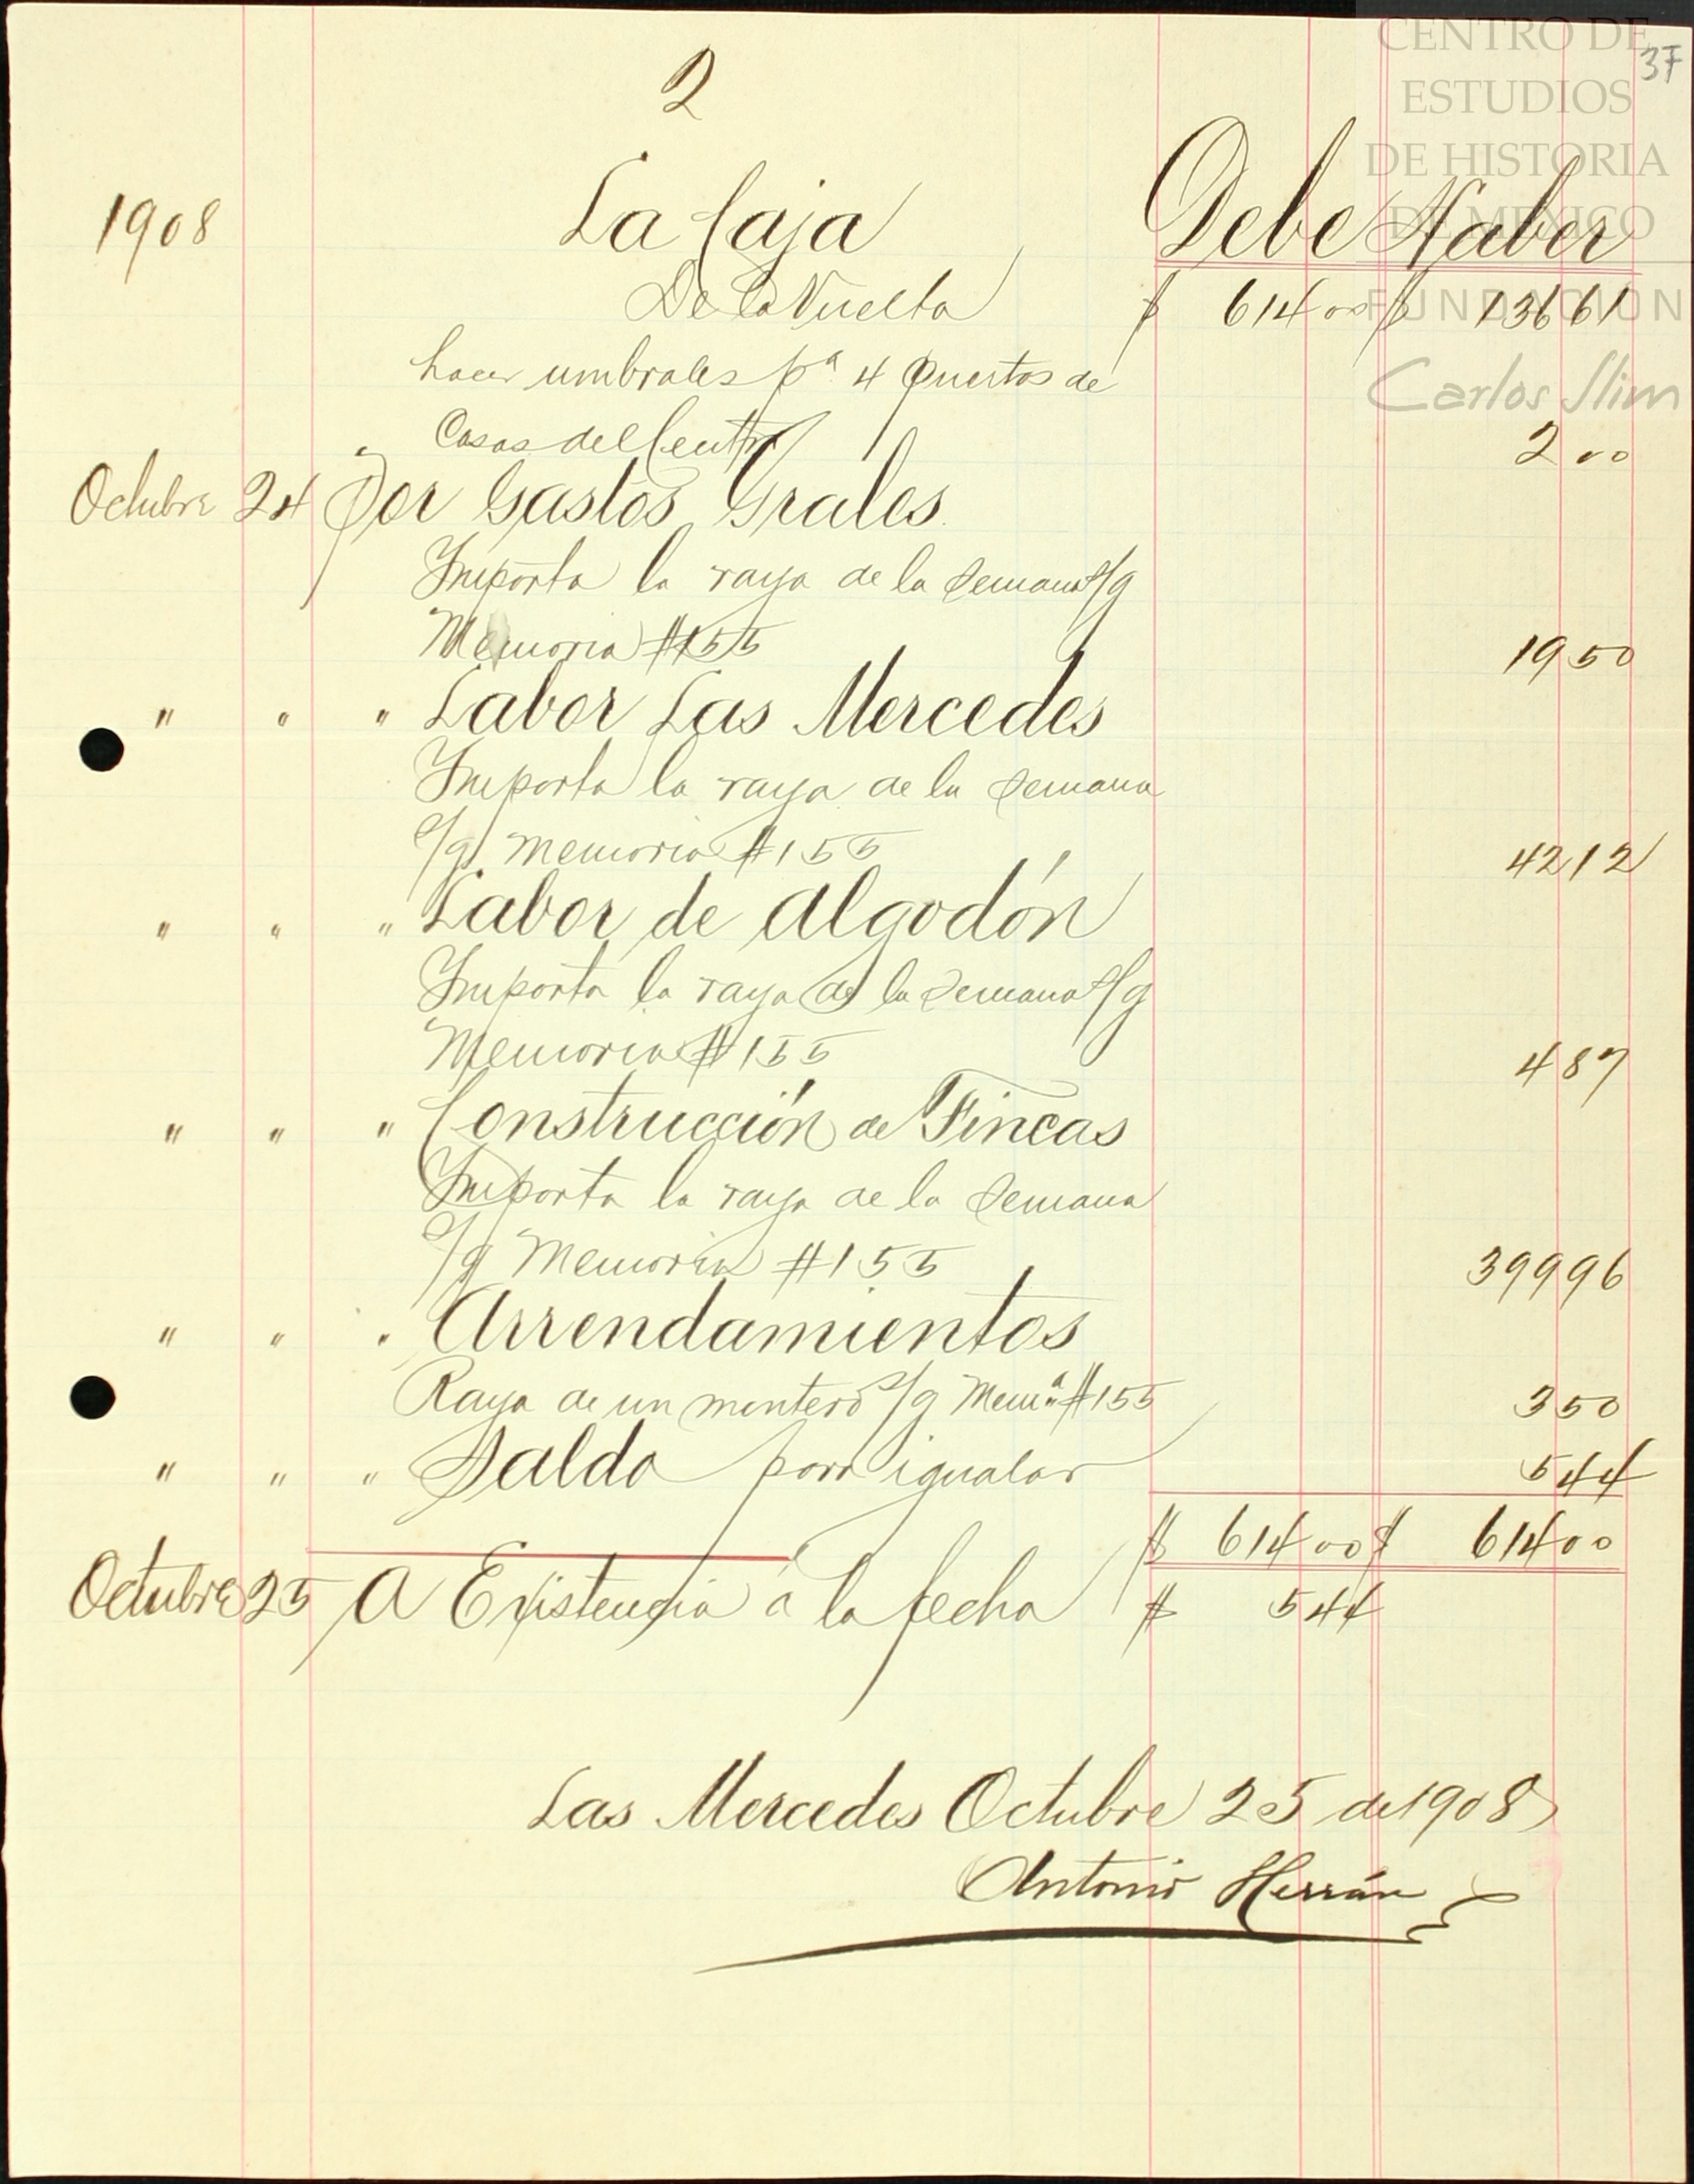 CENTRO DE
ESTUDIOS
DE HISTORIA
DE MÉXICO
FUNDACIÓN
Carlos Slim
37
2
1908 La Caja Debe Haber
De la Vuelta $ 614 00 $ 136 61
hacer umbrales pª 4 puertas de
Casas del Centro 2 00
Octubre 24 Por Gastos Grales.
Importa la raya de la semana s/g
Memoria #155 19 50
" " " Labor Las Mercedes
Importa la raya de la semana
s/g Memoria #155 42 12
" " " Labor de Algodón
Importa la raya de la semana s/g
Memoria #155 4 87
" " " Construcción de Fincas
Importa la raya de la semana
s/g Memoria #155 399 96
" " " Arrendamientos
Raya de un montero s/g Memª #155 3 50
" " " Saldo para igualar 5 44
$ 614 00 $ 614 00
Octubre 25 A Existencia á la fecha $ 5 44
Las Mercedes Octubre 25 de 1908
Antonio Herrán